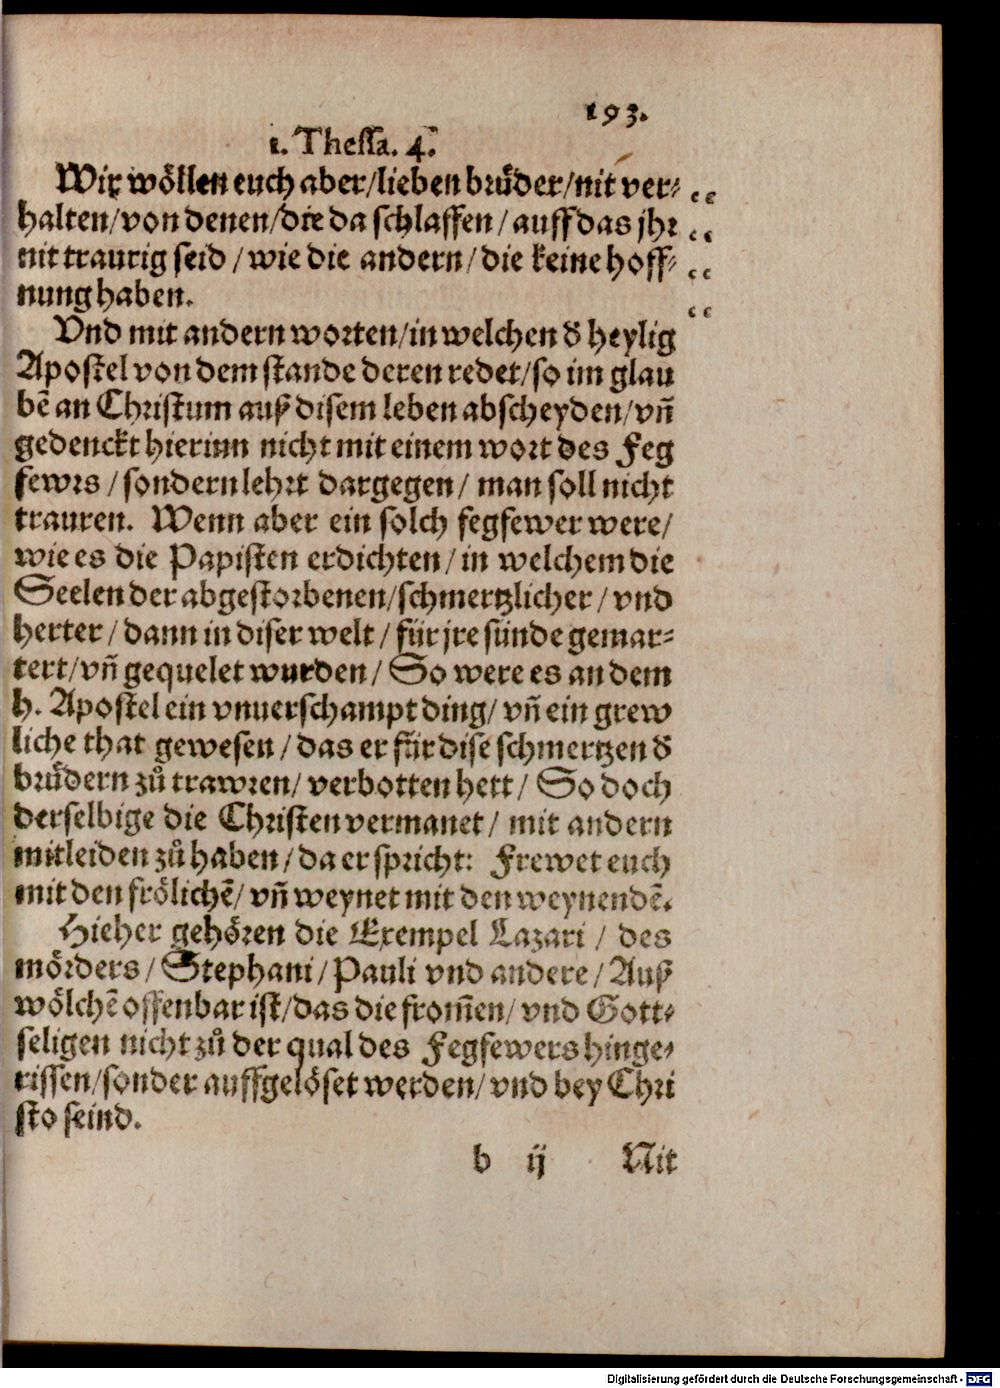 193.
1. Thessa. 4.
Wir wöllen euch aber/lieben bruͤder/nit ver⸗
halten/von denen/die da schlaffen/auff das jhr
nit traurig seid/wie die andern/die keine hoff⸗
nung haben.
Vnd mit andern worten/in welchen d̕ heylig
Apostel von dem stande deren redet/so im glau
bẽ an Christum auß disem leben abscheyden/vñ
gedenckt hierinn nicht mit einem wort des Feg
fewrs/sondern lehrt dargegen/man soll nicht
trauren. Wenn aber ein solch fegfewer were/
wie es die Papisten erdichten/in welchem die
Seelen der abgestorbenen/schmertzlicher/vnd
herter/dann in diser welt/für jre sünde gemar⸗
tert/vñ gequelet wurden/So were es an dem
h. Apostel ein vnuerschampt ding/vñ ein grew
liche that gewesen/das er für dise schmertzen d̕
bruͤdern zuͦ trawren/verbotten hett/So doch
derselbige die Christen vermanet/mit andern
mitleiden zuͦ haben/da er spricht: Frewet euch
mit den frölichẽ/vñ weynet mit den weynendẽ.
Hieher gehören die Exempel Lazari/des
mörders/Stephani/Pauli vnd andere/Auß
wölchẽ offenbar ist/das die from̃en/vnd Gott⸗
seligen nicht zuͦ der qual des Fegfewers hinge⸗
rissen/sonder auffgelöset werden/vnd bey Chri
sto seind.
b ij Nit
Digitalisierung gefördert durch die Deutsche Forschungsgemeinschaft - DFG